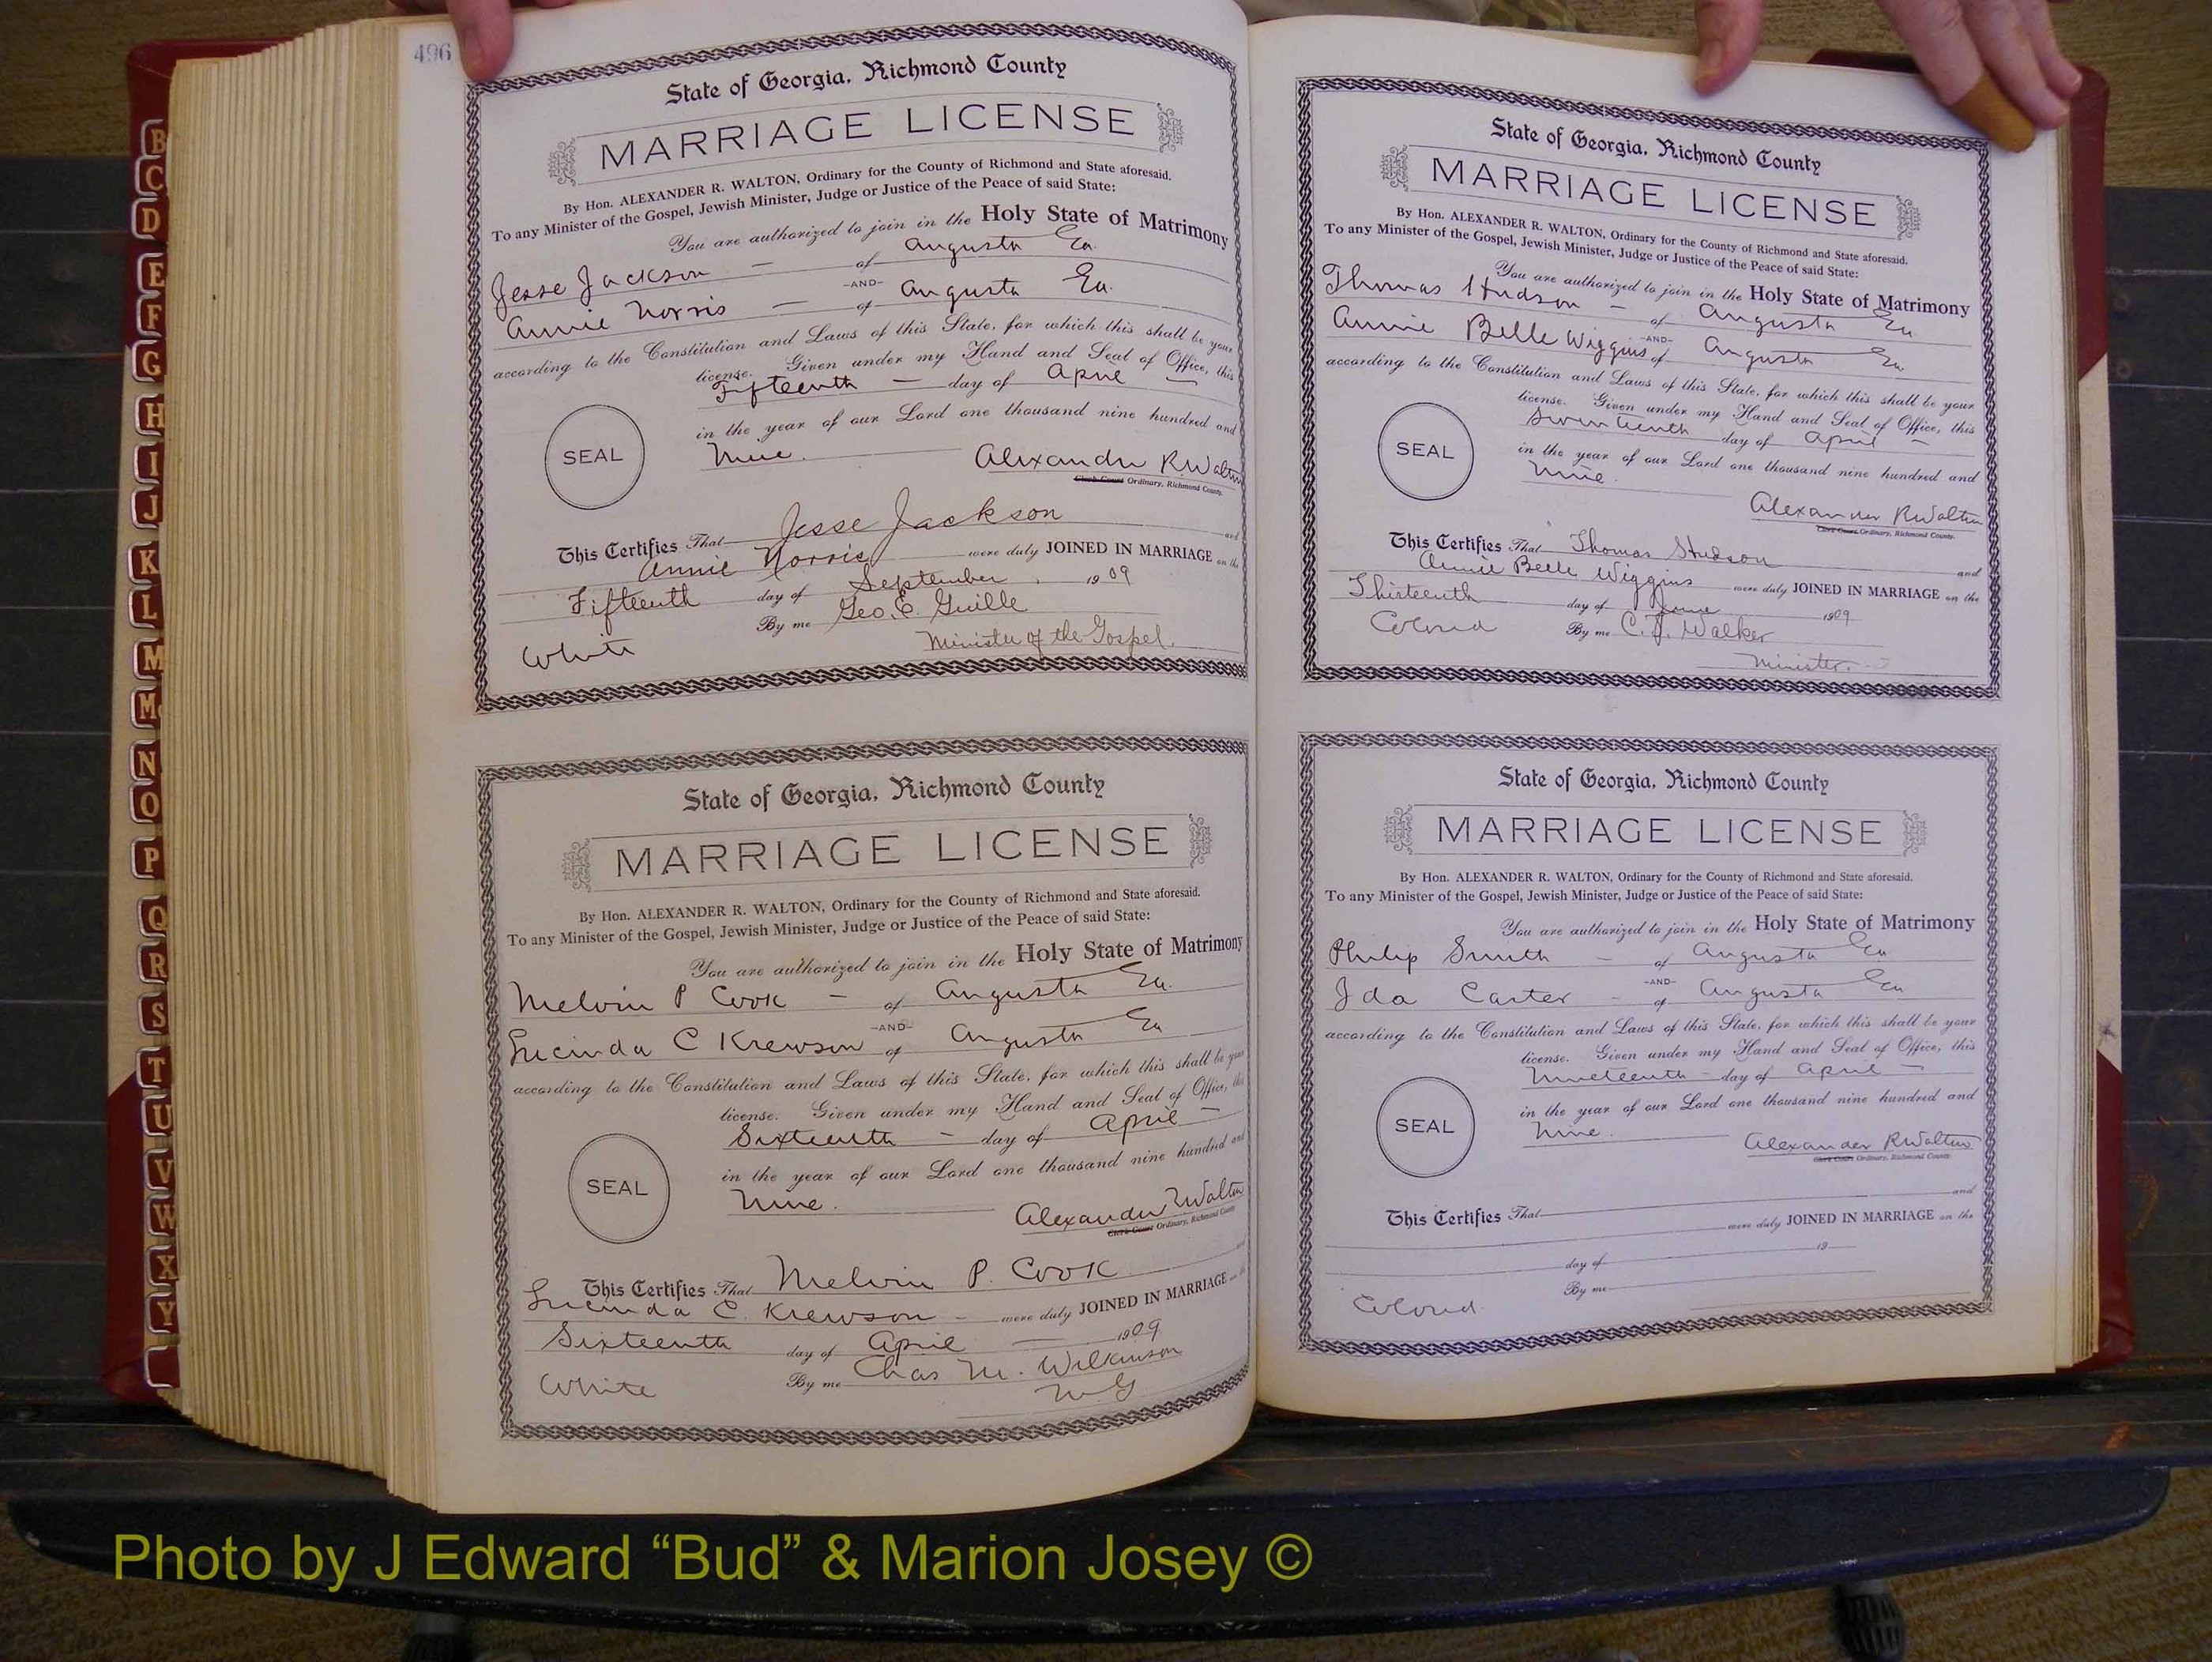 496
State of Georgia, Richmond County
MARRIAGE LICENSE
By Hon. ALEXANDER R. WALTON, Ordinary for the County of Richmond and State aforesaid.
To any Minister of the Gospel, Jewish Minister, Judge or Justice of the Peace of said State:
You are authorized to join in the Holy State of Matrimony
Jesse Jackson — of Augusta Ga.
-AND-
Annie Norris — of Augusta Ga.
according to the Constitution and Laws of this State, for which this shall be your
license. Given under my Hand and Seal of Office, this
Fifteenth — day of April —
in the year of our Lord one thousand nine hundred and
SEAL
Nine.
Alexander R Walton
Clerk Court Ordinary, Richmond County.
This Certifies That Jesse Jackson and
Annie Norris were duly JOINED IN MARRIAGE on the
Fifteenth day of September. 1909
By me Geo. E. Guille
White
Minister of the Gospel.
State of Georgia, Richmond County
MARRIAGE LICENSE
By Hon. ALEXANDER R. WALTON, Ordinary for the County of Richmond and State aforesaid.
To any Minister of the Gospel, Jewish Minister, Judge or Justice of the Peace of said State:
You are authorized to join in the Holy State of Matrimony
Melvin P Cook — of Augusta Ga.
-AND-
Lucinda C Krewson of Augusta Ga
according to the Constitution and Laws of this State, for which this shall be your
license. Given under my Hand and Seal of Office, this
Sixteenth — day of April —
in the year of our Lord one thousand nine hundred and
SEAL
Nine.
Alexander R Walton
Clerk Court Ordinary, Richmond County
This Certifies That Melvin P. Cook and
Lucinda C. Krewson — were duly JOINED IN MARRIAGE on the
Sixteenth day of April — 1909.
By me Chas M. Wilkinson
White
M G
State of Georgia, Richmond County
MARRIAGE LICENSE
By Hon. ALEXANDER R. WALTON, Ordinary for the County of Richmond and State aforesaid.
To any Minister of the Gospel, Jewish Minister, Judge or Justice of the Peace of said State:
You are authorized to join in the Holy State of Matrimony
Thomas Hudson — of Augusta Ga
-AND-
Annie Belle Wiggins of Augusta Ga.
according to the Constitution and Laws of this State, for which this shall be your
license. Given under my Hand and Seal of Office, this
Seventeenth day of April —
in the year of our Lord one thousand nine hundred and
SEAL
Nine.
Alexander R Walton
Clerk Court Ordinary, Richmond County.
This Certifies That Thomas Hudson and
Annie Belle Wiggins were duly JOINED IN MARRIAGE on the
Thirteenth day of June 1909
Colored
By me C. T. Walker
Minister.
State of Georgia, Richmond County
MARRIAGE LICENSE
By Hon. ALEXANDER R. WALTON, Ordinary for the County of Richmond and State aforesaid.
To any Minister of the Gospel, Jewish Minister, Judge or Justice of the Peace of said State:
You are authorized to join in the Holy State of Matrimony
Philip Smith — of Augusta Ga
-AND-
Ida Carter — of Augusta Ga
according to the Constitution and Laws of this State, for which this shall be your
license. Given under my Hand and Seal of Office, this
Nineteenth — day of April —
in the year of our Lord one thousand nine hundred and
SEAL
Nine.
Alexander R Walton
Clerk Court Ordinary, Richmond County.
This Certifies That and
were duly JOINED IN MARRIAGE on the
day of 19
By me
Colored
B
C
D
E
F
G
H
I
J
K
L
M
Mc
N
O
P
Q
R
S
T
U
V
W
X
Y
Photo by J Edward “Bud” & Marion Josey ©